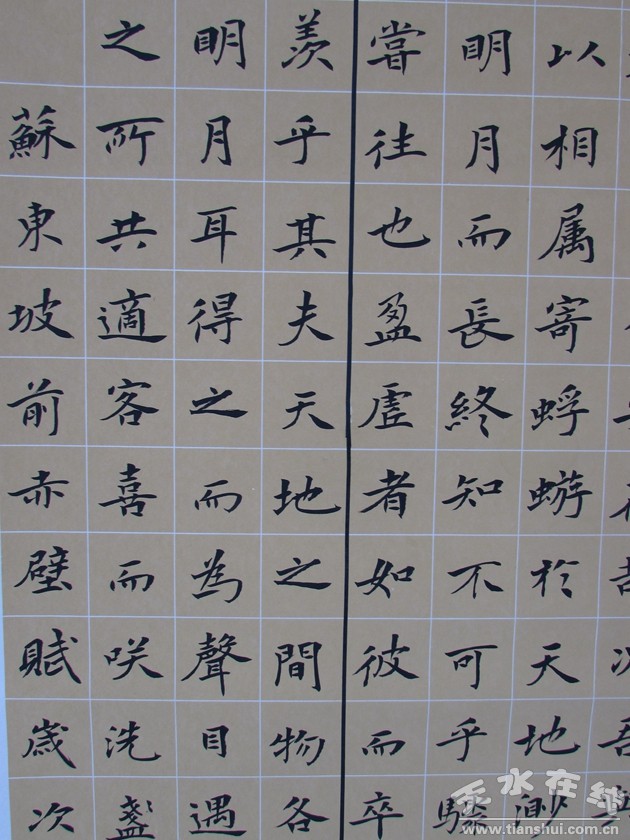 以相属寄蜉蝣於天地渺
明月而長終知不可乎驟
嘗往也盈虛者如彼而卒
羨乎其夫天地之間物各
明月耳得之而為聲目遇
之所共適客喜而咲洗盞
蘇東坡前赤壁賦歲次
天水在线
www.tianshui.com.cn